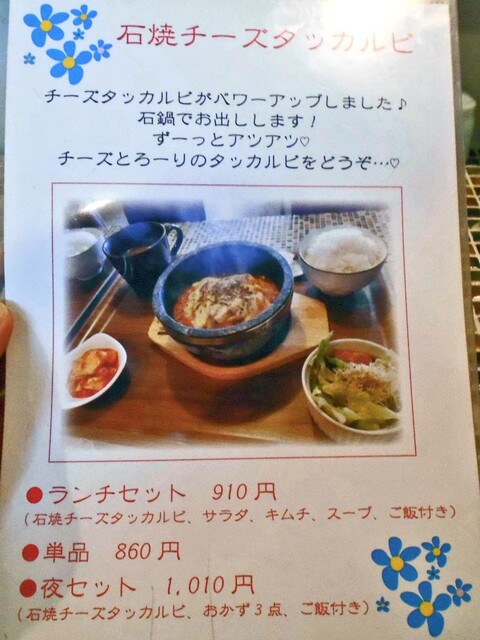 石焼チーズタッカルビ
チーズタッカルビがパワーアップしました♪
石鍋でお出しします！
ずーっとアツアツ♡
チーズとろーりのタッカルビをどうぞ…♡
●ランチセット　910円
（石焼チーズタッカルビ、サラダ、キムチ、スープ、ご飯付き）
●単品　860円
●夜セット　1,010円
（石焼チーズタッカルビ、おかず3点、ご飯付き）